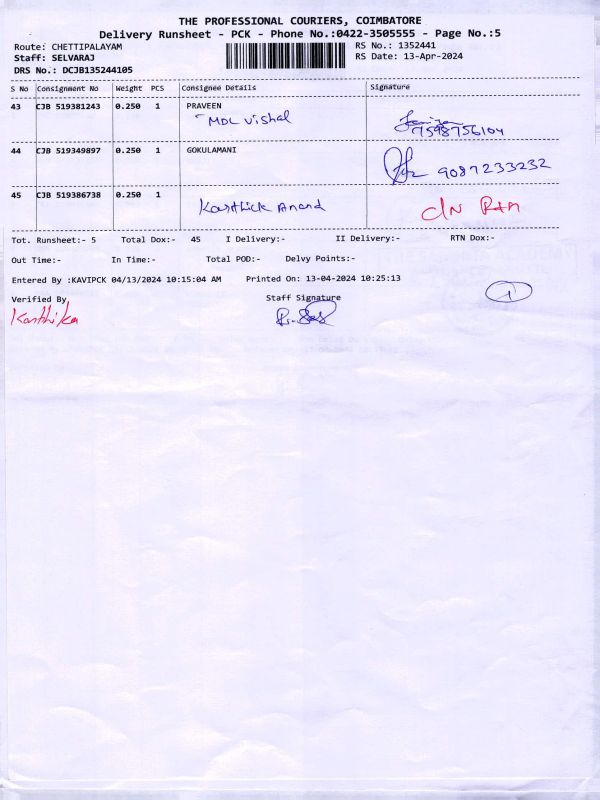 THE PROFESSIONAL COURIERS, COIMBATORE
Delivery Runsheet - PCK - Phone No.:0422-3505555 - Page No.:5
Route: CHETTIPALAYAM RS No.: 1352441
Staff: SELVARAJ RS Date: 13-Apr-2024
DRS No.: DCJB135244105
S No Consignment No Weight PCS Consignee Details Signature
43 CJB 519381243 0.250 1 PRAVEEN
MDL Vishal
7598756104
44 CJB 519349897 0.250 1 GOKULAMANI
9087233232
45 CJB 519386738 0.250 1
Karthick Anand C/N RTM
Tot. Runsheet:- 5 Total Dox:- 45 I Delivery:- II Delivery:- RTN Dox:-
Out Time:- In Time:- Total POD:- Delvy Points:-
Entered By :KAVIPCK 04/13/2024 10:15:04 AM Printed On: 13-04-2024 10:25:13
1
Verified By Staff Signature
Karthika